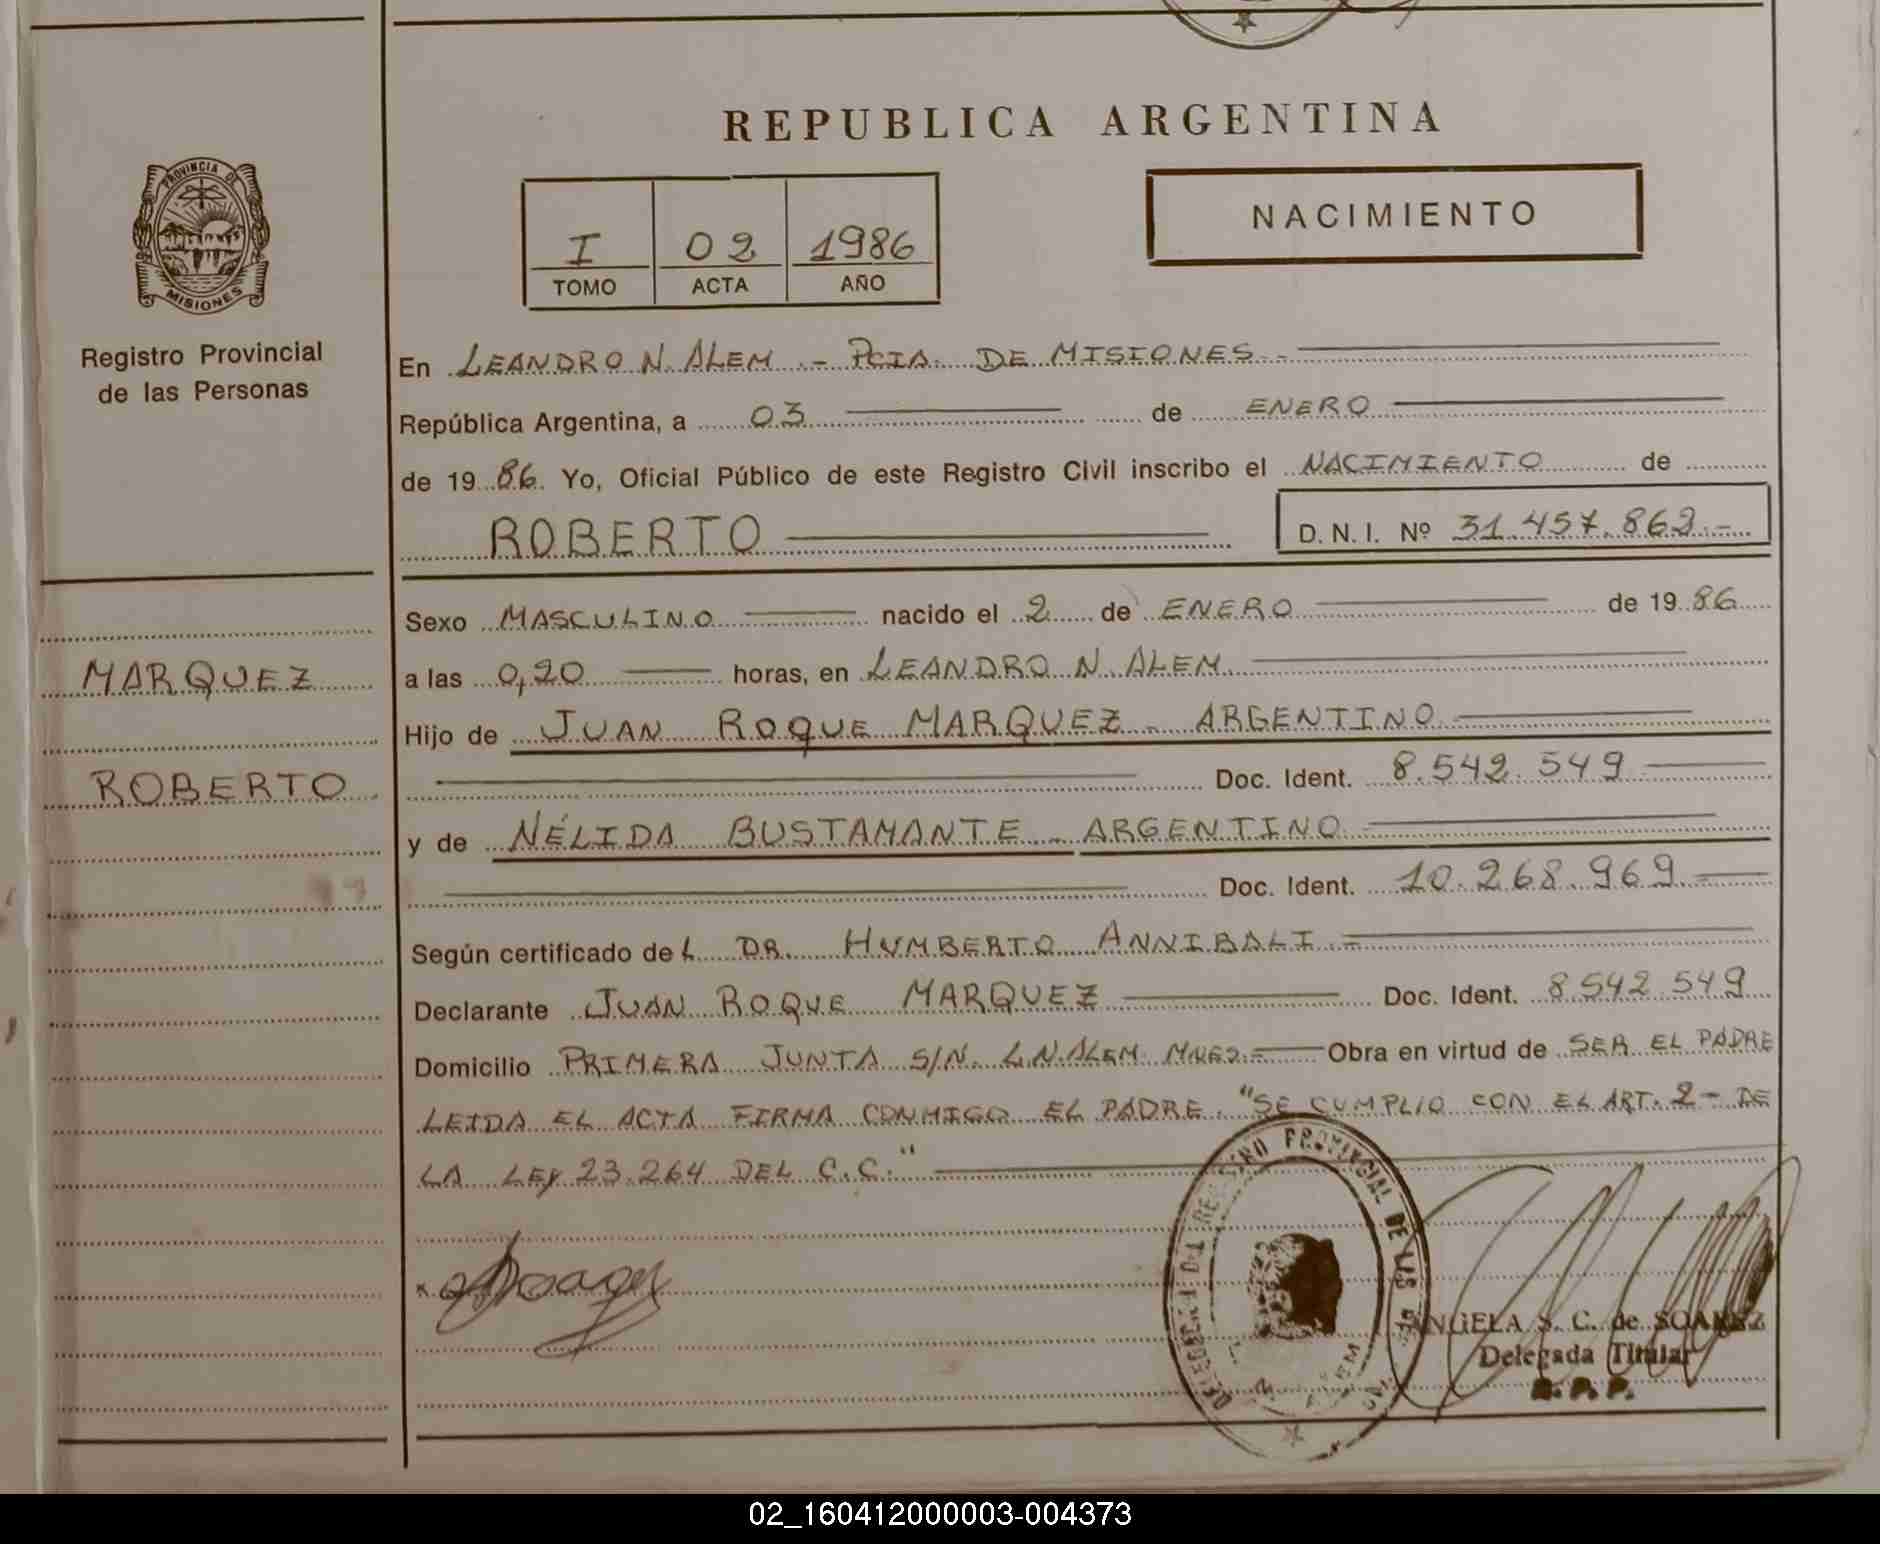 REPUBLICA ARGENTINA
PROVINCIA DE
MISIONES
Registro Provincial
de las Personas
I 02 1986
TOMO ACTA AÑO
NACIMIENTO
En LEANDRO N. ALEM - PCIA. DE MISIONES -
República Argentina, a 03 de ENERO
de 1986. Yo, Oficial Público de este Registro Civil inscribo el NACIMIENTO de
ROBERTO D. N. I. Nº 31.457.862.-
Sexo MASCULINO nacido el 2 de ENERO de 1986
MARQUEZ
a las 0,20 horas, en LEANDRO N. ALEM
Hijo de JUAN ROQUE MARQUEZ - ARGENTINO
Doc. Ident. 8.542.549
ROBERTO
y de NÉLIDA BUSTAMANTE - ARGENTINO
Doc. Ident. 10.268.969
Según certificado del DR. HUMBERTO ANNIBALI.-
Declarante JUAN ROQUE MARQUEZ Doc. Ident. 8.542.549
Domicilio PRIMERA JUNTA S/N. L.N.ALEM. Obra en virtud de SER EL PADRE
LEIDA EL ACTA FIRMA CONMIGO EL PADRE. "SE CUMPLIO CON EL ART. 2 - DE
LA LEY 23.264 DEL C.C."
PROVINCIAL DE LAS
ANGELA S. C. de SOAREZ
Delegada Titular
R. P. P.
02_160412000003-004373